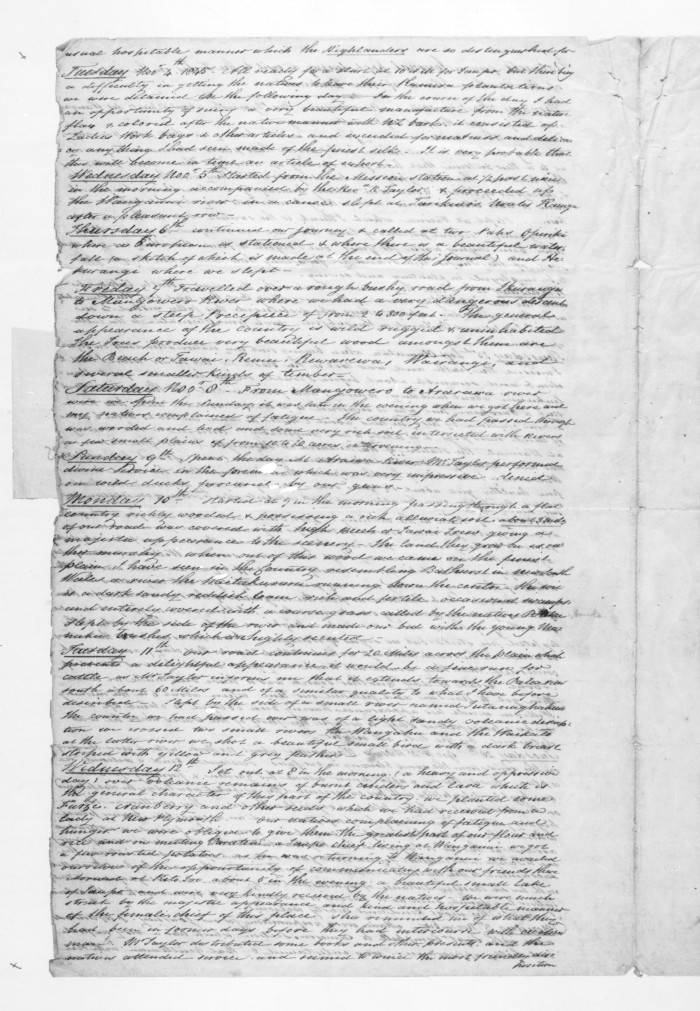 usual hospitable manner which the Highlanders are so distinguished for
Tuesday Nov 4th 1845. All ready for a start at 10 o'clk for Taupo but there being
a difficulty in getting the natives to leave their Kumera plantations
we were detained till the following day. In the course of the day I had
an opportunity of seeing a very beautiful manufacture from the native
flax & colored after the native manner with barks it consisted of
Ladies Work bags & other articles and exceeded for neatness and delicacy
any thing I had seen made of the finest silks. It is very probable that
this will become in time an article of export
Wednesday Nov 5th Started from the Mission station at ½ past
in the morning accompanied by the Revd R. Taylor & proceeded up
the Wanganui river in a canoe slept at
after a pleasant row
Thursday 6th continued our journey & called at two Pahs
where a European is stationed & where there is a beautiful water
fall (a sketch of which is made at the end of this journal) and
where we slept
Friday 7th Travelled over a rough bushy road from
to Mangowero River where we had a very dangerous descent
down a steep Precepiece of from 2 to 300 feet. The general
appearance of the Country is wild rugged & uninhabited
The Trees produce very beautiful wood amongst them are
the Beach or Tawai, Remu, Rewarewa, and
several smaller kinds of timber
Saturday Nov 8th From Mangowero to Ararawa river
were we from the Sunday it was late in the evening when we got here and
my natives complained of fatigue. The country we had passed through
was wooded and some very rich soil intersected with Rivers
a few small plains of from 10 to 20 acres
Sunday 9th Spent the day at River Mr Taylor performed
divine service in the forenoon which was very impressive dined
on wild ducks procured by our guns
Monday 10th Started at 9 in the morning passing through a flat
country richly wooded & possessing a rich alluvial soil about
of our road was covered with high Beech or Tawai Trees giving a
majestic appearance to the scenery. The land they grow on is
marshy. When out of this wood we came on the finest
plain I have seen in the country resembling Bathurst in new South
Wales a river the running down the center the soil
is a dark sandy reddish loam rich and fertile occasional swamps
and entirely covered with a coarse grass called by the natives
slept by the side of the river and made our bed with the young
bushes which are highly scented
Tuesday 11th our road continues for 20 Miles across the plain which
presents a delightful appearance it would be a fine run for
cattle as Mr Taylor informs me that it extends towards the
south about 60 Miles and of a similar quality to what I have before
described. Slept by the side of a small river named
the country we had passed over was of a light sandy volcanic descrip-
tion we crossed two small rivers the Wangahu and the Waikato
at the latter river we shot a beautiful small bird with a dark breast
striped with yellow and grey feathers
Wednesday 12th Set out at 8 in the morning (a heavy and oppressive
day) over Volcanic remains of burnt cinders and lava which is
the general character of this part of the country. we planted some
Furze, cranberry and other seeds which we had received from a
lady at New Plymouth our natives complaining of fatigue and
hunger we were obliged to give them the greatest part of our flour and
rice and on meeting a Taupo chief living at Wanganui we got
a few roasted potatoes as he was returning to Wanganui we availed
ourselves of the opportunity of communicating with our friends there
Arrived at about 5 in the evening a beautiful small Lake
of Taupo and were very kindly received by the natives. we were much
struck by the majestic appearance and kind and hospitable manner
of the female chief of this place. She reminded me of what they
had been in former days before they had intercourse with
man. Mr Taylor distributed some books and other presents and the
natives attended service and seemed to evince the most friendly dis-
position